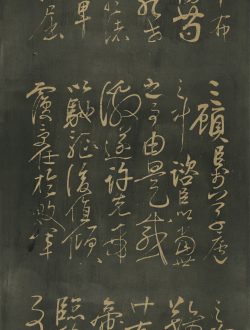 布
苟
卑
屈
三顧臣於草廬
之中諮臣以當世
之事由是感
激遂許先帝
以驅馳後值傾
覆受任於敗軍
帝
臨